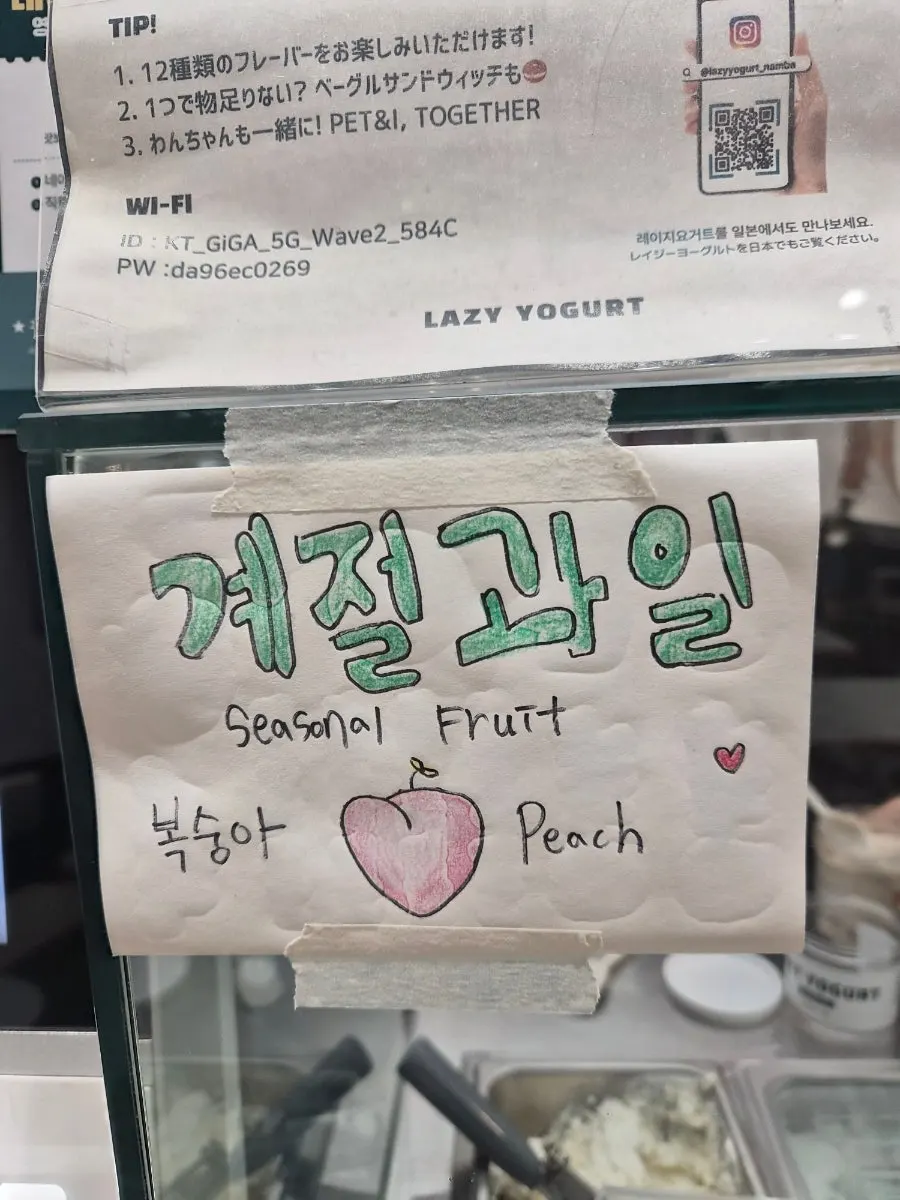 TIP!
1. 12種類のフレーバーをお楽しみいただけます!
2. 1つで物足りない? ベーグルサンドウィッチも
3. わんちゃんも一緒に! PET&I, TOGETHER
WI-FI
ID : KT_GiGA_5G_Wave2_584C
PW :da96ec0269
@lazyyogurt_namba
레이지요거트를 일본에서도 만나보세요.
レイジーヨーグルトを日本でもご覧ください。
LAZY YOGURT
계절과일
Seasonal Fruit
복숭아 Peach
YOGURT